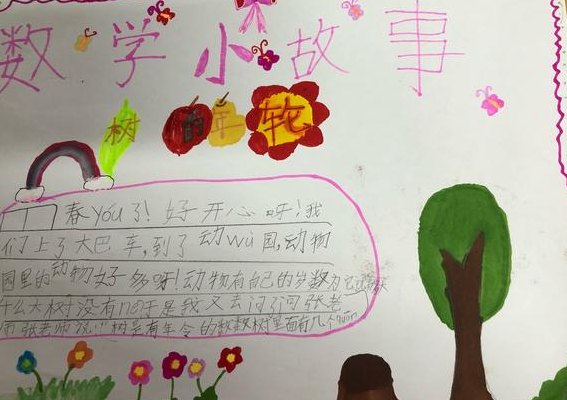 数学小故事
树的年轮
春yóu了！好开心呀！我
们上了大巴车，到了动wù园，动物
园里的动物好多呀！动物有自己的岁数为
什么大树没有ne于是我又去问了问张老
师张老师说：“树是有年令的数数树里面有几个